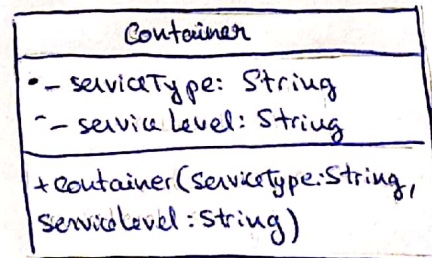 Container
- serviceType: String
- service Level: String
+ container(serviceType:String,
serviceLevel: String)